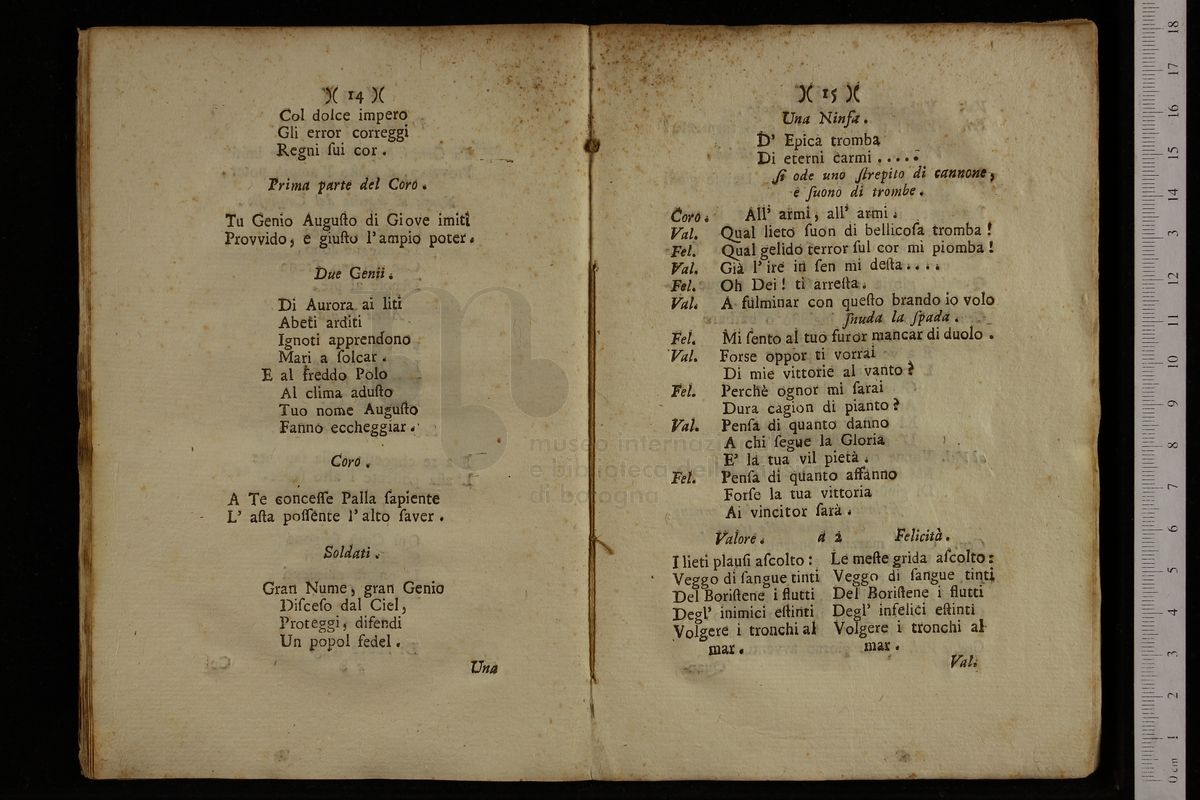 )( 14 )(
Col dolce impero
Gli error correggi
Regni ſui cor.
Prima parte del Coro.
Tu Genio Auguſto di Giove imiti
Provvido, e giuſto l'ampio poter.
Due Genii.
Di Aurora ai liti
Abeti arditi
Ignoti apprendono
Mari a ſolcar.
E al freddo Polo
Al clima aduſto
Tuo nome Auguſto
Fanno eccheggiar.
Coro.
A Te conceſſe Palla ſapiente
L' aſta poſſente l'alto ſaver.
Soldati.
Gran Nume, gran Genio
Diſceſo dal Ciel,
Proteggi, difendi
Un popol fedel.
Una
)( 15 )(
Una Ninfa.
D' Epica tromba
Di eterni carmi .....
ſi ode uno ſtrepito di cannone,
e ſuono di trombe.
Coro. All' armi, all' armi.
Val. Qual lieto ſuon di bellicoſa tromba!
Fel. Qual gelido terror ſul cor mi piomba!
Val. Già l' ire in ſen mi deſta....
Fel. Oh Dei! ti arreſta.
Val. A fulminar con queſto brando io volo
ſnuda la ſpada.
Fel. Mi ſento al tuo furor mancar di duolo.
Val. Forse oppor ti vorrai
Di mie vittorie al vanto?
Fel. Perchè ognor mi ſarai
Dura cagion di pianto?
Val. Penſa di quanto danno
A chi ſegue la Gloria
E' la tua vil pietà.
Fel. Penſa di quanto affanno
Forſe la tua vittoria
Ai vincitor ſarà.
Valore. a 2 Felicità.
I lieti plauſi aſcolto: Le meſte grida aſcolto:
Veggo di ſangue tinti Veggo di ſangue tinti
Del Boriſtene i flutti Del Boriſtene i flutti
Degl' inimici eſtinti Degl' infelici eſtinti
Volgere i tronchi al Volgere i tronchi al
mar. mar.
Val.
museo internazi
e biblioteca della
di bologna
0 cm 1 2 3 4 5 6 7 8 9 10 11 12 13 14 15 16 17 18